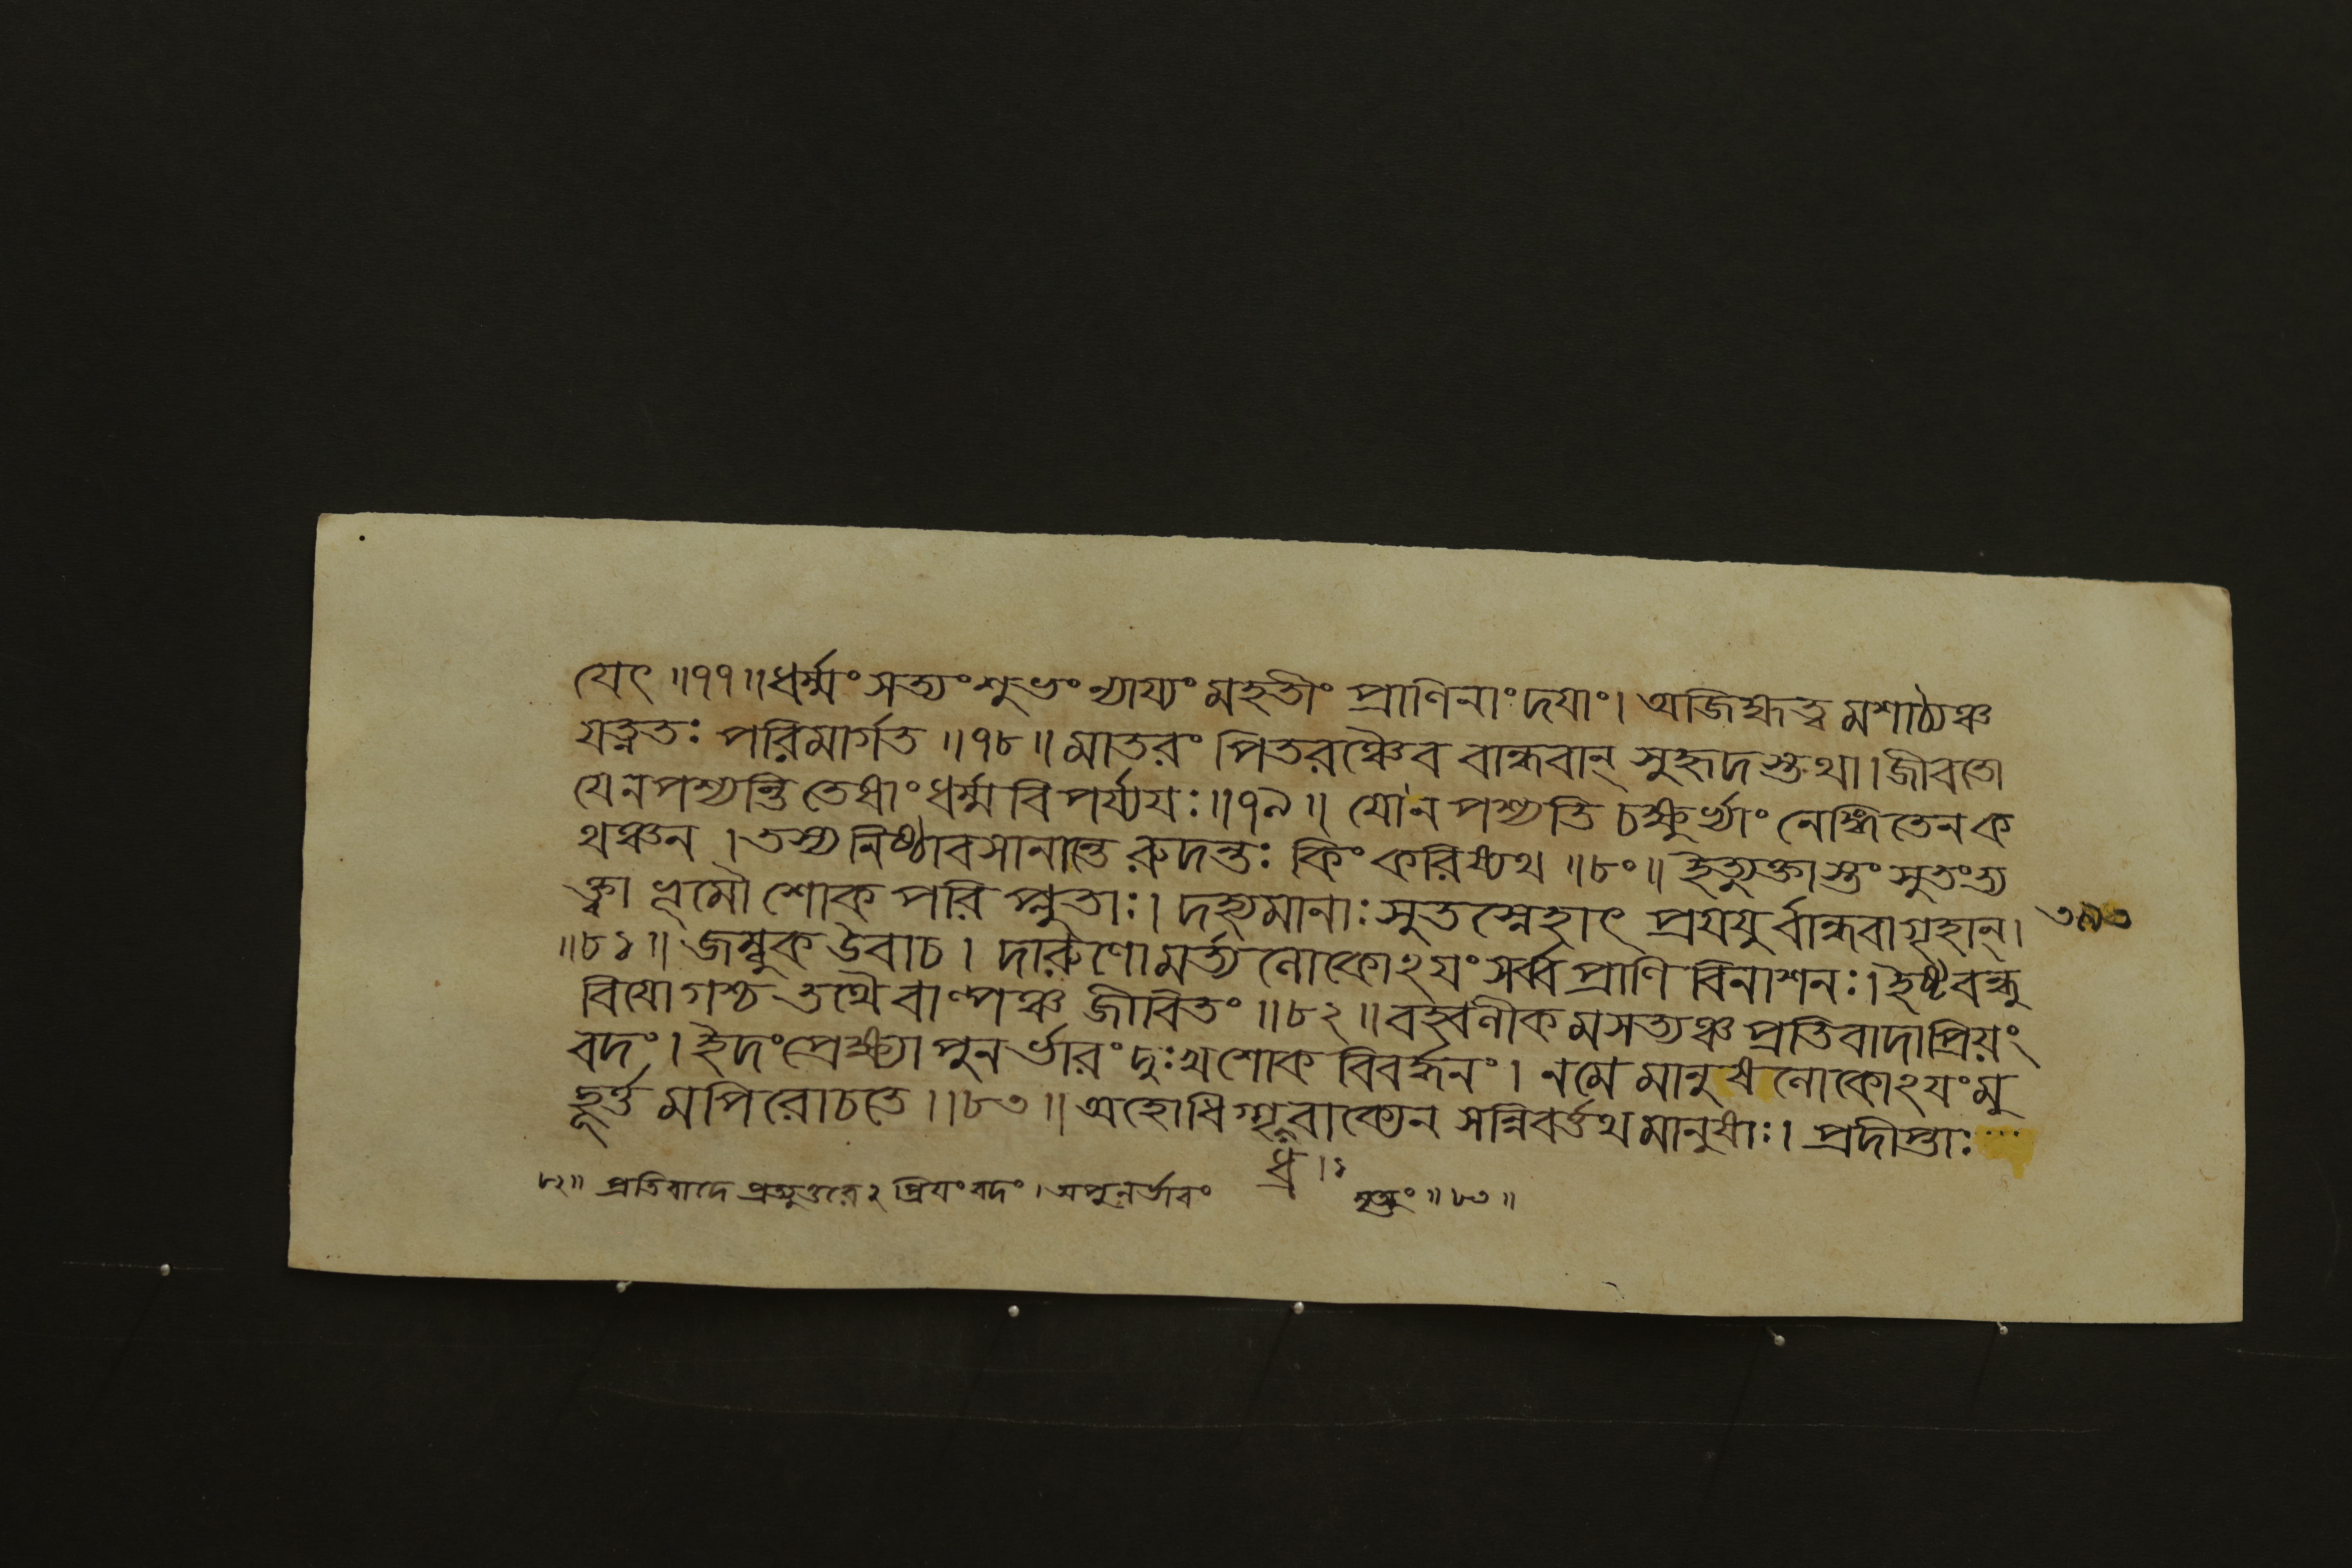 যেৎ ॥৭৭॥ ধর্ম্মং সত্যং শুভং ন্যায্যং মহতীং প্রাণিনাং দয়াং । অজিহ্মত্ব মশাঠ্যঞ্চ
যত্নতঃ পরিমার্গত ॥৭৮॥ মাতরং পিতরঞ্চৈব বান্ধবান্ সুহৃদ স্তথা । জীবতো
যে ন পশ্যন্তি তেষাং ধর্ম্ম বিপর্য্যয়ঃ ॥৭৯॥ যো ন পশ্যতি চক্ষুর্ভ্যাং নেঙ্গিতেন ক
থঞ্চন । তস্য নিষ্ঠাবসানান্তে রুদন্তঃ কিং করিষ্যথ ॥৮০॥ ইত্যুক্তাস্তং সুতং ত্য
ক্ত্বা ভূমৌ শোক পরি প্লুতাঃ । দহ্যমানাঃ সুত স্নেহাৎ প্রযযু র্বান্ধবা গৃহান্ ।
॥৮১॥ জম্বুক উবাচ । দারুণো মর্ত্য লোকোঽয়ং সর্ব্ব প্রাণি বিনাশনঃ । ইষ্ট বন্ধু
বিয়োগশ্চ তথৈবাল্পঞ্চ জীবিতং ॥৮২॥ বহ্বলীক মসত্যঞ্চ প্রতিবাদাপ্রিয়ং
বদং । ইদং প্রেক্ষ্য পুনর্ভারং দুঃখ শোক বিবর্দ্ধনং । ন মে মানুষ লোকোঽয়ং মু
হূর্ত্ত মপি রোচতে ॥৮৩॥ অহো ধিগ্ গৃধ্র বাক্যেন সন্নিবর্ত্তথ মানুষাঃ । প্রদীপ্তাঃ
ধ্র । ১
৮২॥ প্রতিবাদে প্রত্যুত্তরে ঽপ্রিয়ং বদং । অপুনর্ভাবং মৃত্যুং ॥৮৩॥